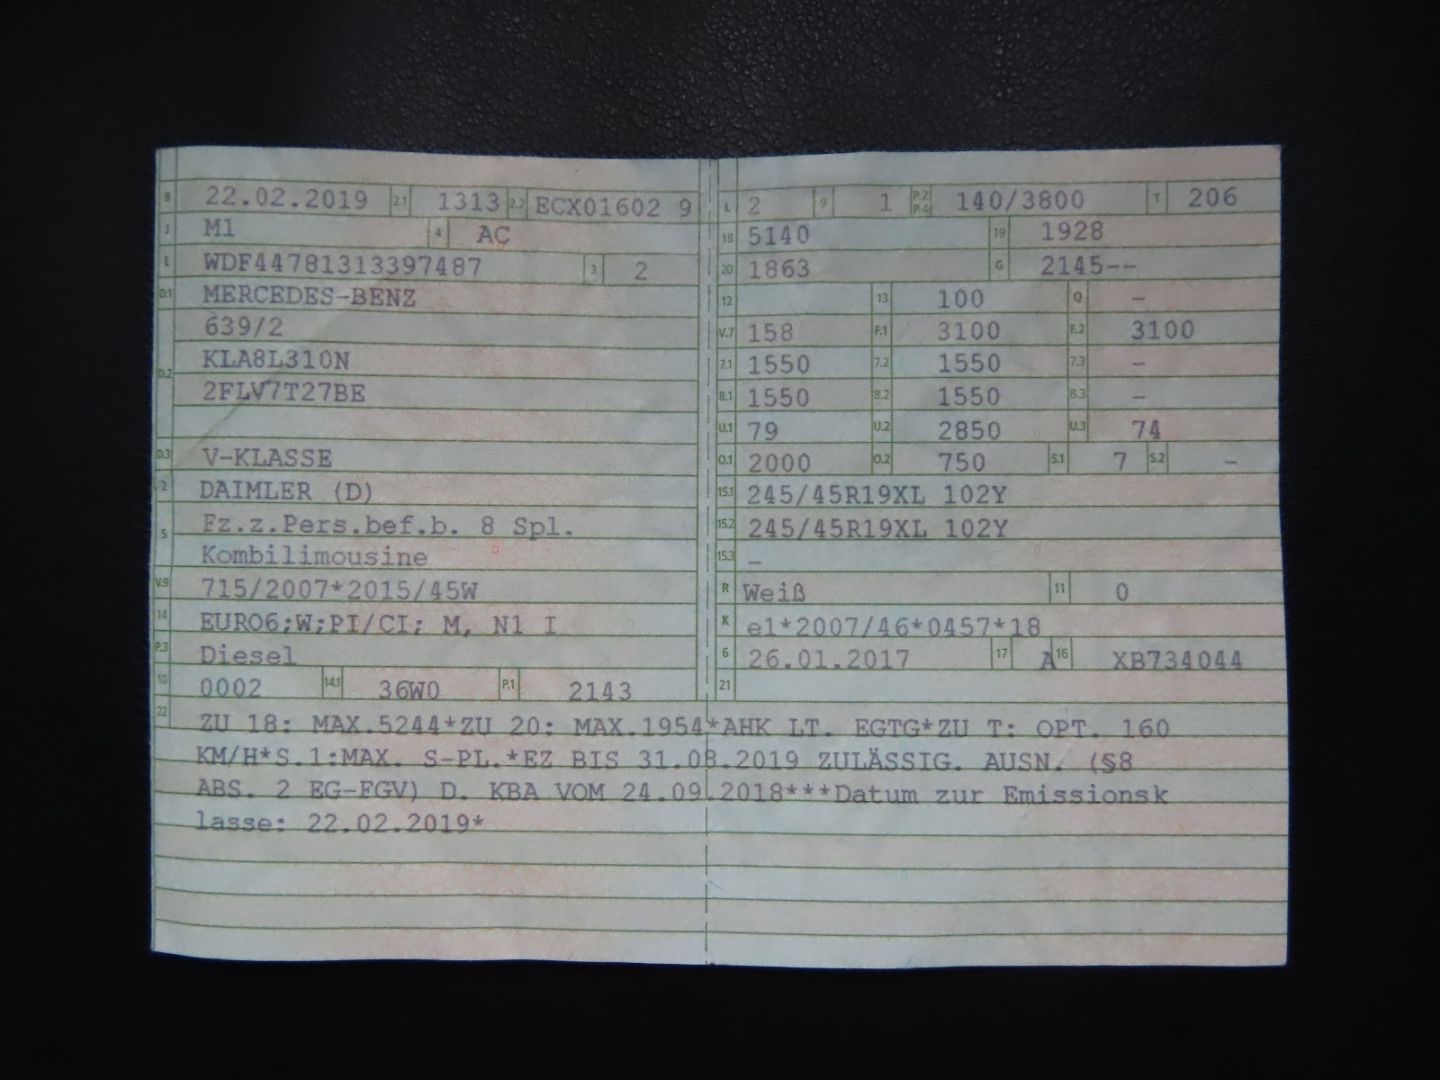 B 22.02.2019 2.1 1313 2.2 ECX01602 9
J M1 4 AC
E WDF44781313397487 3 2
D.1 MERCEDES-BENZ
639/2
D.2 KLA8L310N
2FLV7T27BE
D.3 V-KLASSE
2 DAIMLER (D)
5 Fz.z.Pers.bef.b. 8 Spl.
Kombilimousine
V.9 715/2007*2015/45W
14 EURO6;W;PI/CI; M, N1 I
P.3 Diesel
10 0002 14.1 36W0 P.1 2143
L 2 9 1 P.2 P.4 140/3800 T 206
18 5140 19 1928
20 1863 G 2145--
12 13 100 Q -
V.7 158 F.1 3100 F.2 3100
7.1 1550 7.2 1550 7.3 -
8.1 1550 8.2 1550 8.3 -
U.1 79 U.2 2850 U.3 74
O.1 2000 O.2 750 S.1 7 S.2 -
15.1 245/45R19XL 102Y
15.2 245/45R19XL 102Y
15.3 -
R Weiß 11 0
K e1*2007/46*0457*18
6 26.01.2017 17 A 16 XB734044
21
22 ZU 18: MAX.5244*ZU 20: MAX.1954*AHK LT. EGTG*ZU T: OPT. 160
KM/H*S.1:MAX. S-PL.*EZ BIS 31.08.2019 ZULÄSSIG. AUSN. (§8
ABS. 2 EG-FGV) D. KBA VOM 24.09.2018***Datum zur Emissionsk
lasse: 22.02.2019*